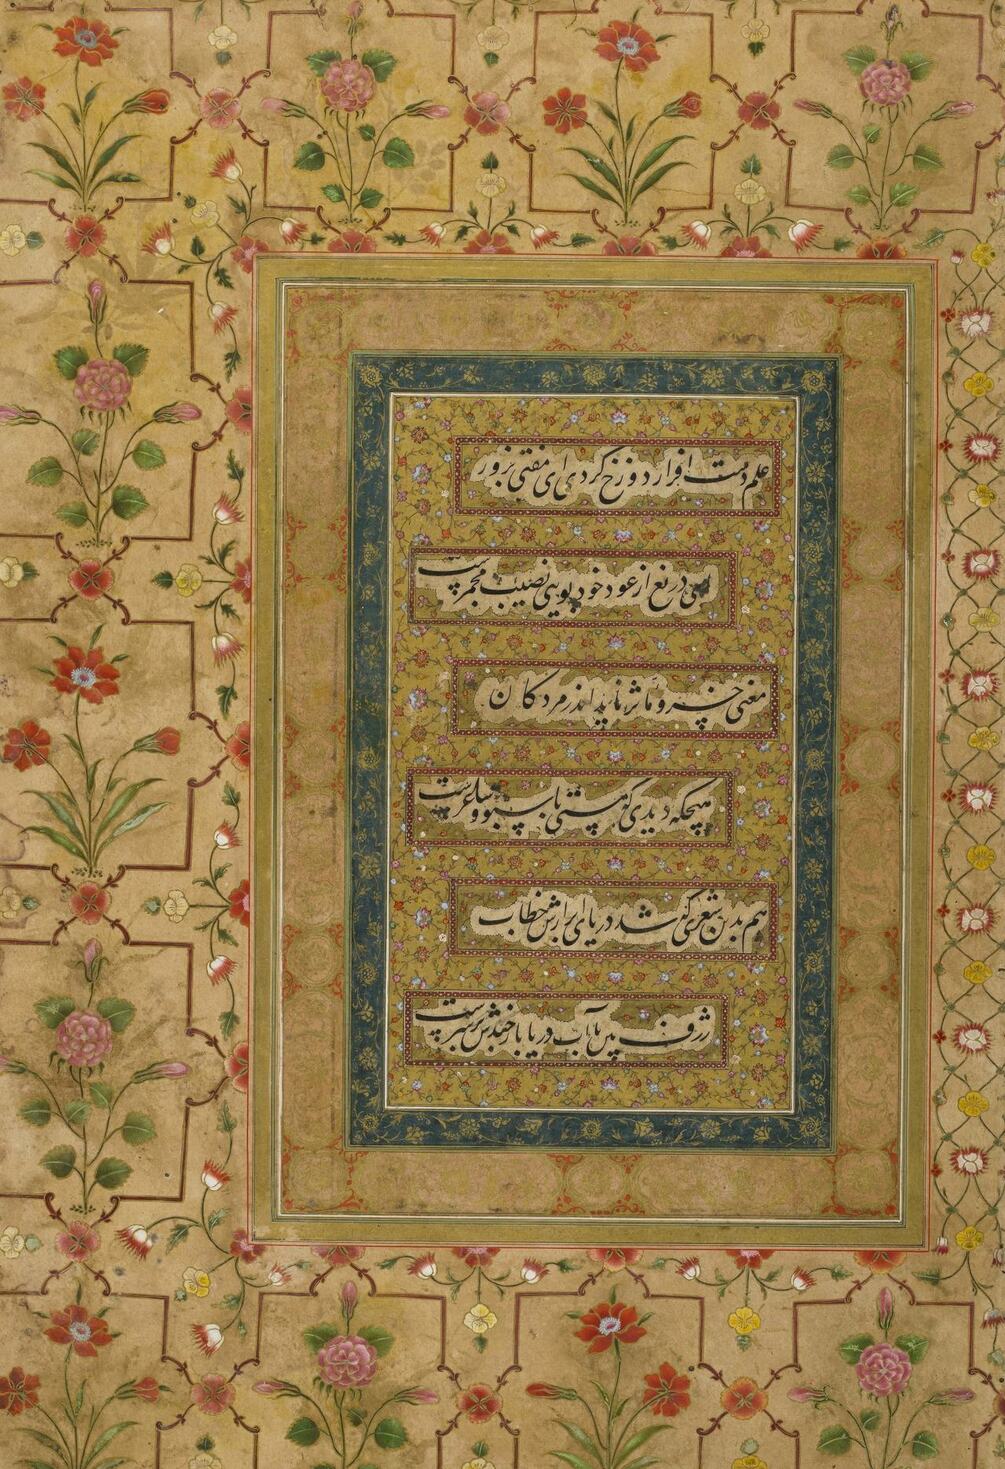 علم دست افزار دوزخ کردی ای مفتی بزور
ای دریغ از عود خود بویی نصیب مجمرست
معنی خسرو مآثر ناید اندر مردکان
هیچکه دیدی که مستی با سبو و ساغرست
هم بدین شعری که شد دریای ابرارش خطاب
ژرف بین با آب دریا بازجنبش برترست